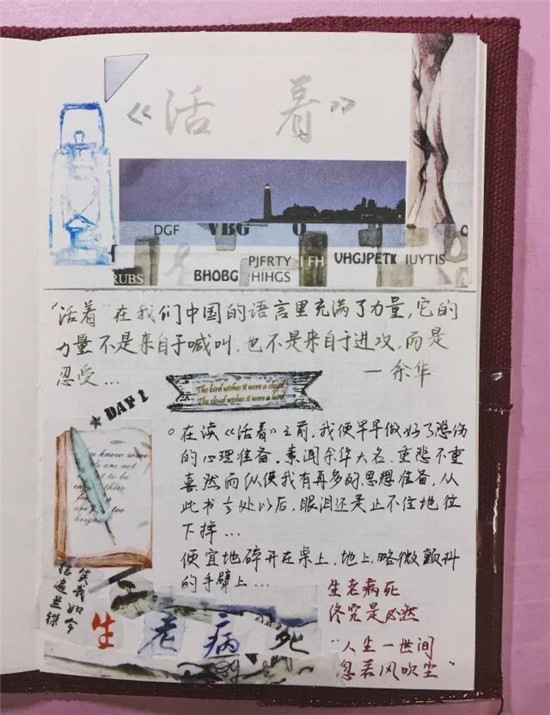 《活着》
DGF VBG O
PJFRTY FH VHGJPETK IUYTIS
RUBS BHOBG HIHGS
"活着"在我们中国的语言里充满了力量,它的
力量不是来自于喊叫,也不是来自于进攻,而是
忍受...
—余华
The bird wishes it were a cloud.
The cloud wishes it were a bird.
★DAY 1
。在读《活着》之前,我便早早做好了悲伤
的心理准备,素闻余华大名,重悲不重
喜然而纵使我有再多的思想准备,从
此书
以后,眼泪还是止不住地往
下掉...
便宜地碎开在桌上,地上,略微颤抖
的手臂上...
生老病死
生老病死
终究是必然
"人生一世间
忽若风吹尘"